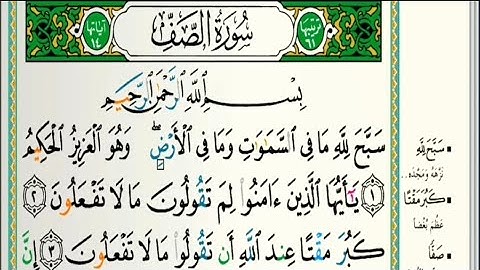 ترتيبها ٦١ سُورَةُ الصَّفِّ آياتها ١٤
بِسْمِ ٱللَّهِ ٱلرَّحْمَٰنِ ٱلرَّحِيمِ
سَبَّحَ لِلَّهِ مَا فِى ٱلسَّمَٰوَٰتِ وَمَا فِى ٱلْأَرْضِ ۖ وَهُوَ ٱلْعَزِيزُ ٱلْحَكِيمُ
١ يَٰٓأَيُّهَا ٱلَّذِينَ ءَامَنُوا۟ لِمَ تَقُولُونَ مَا لَا تَفْعَلُونَ ٢
كَبُرَ مَقْتًا عِندَ ٱللَّهِ أَن تَقُولُوا۟ مَا لَا تَفْعَلُونَ ٣ إِنَّ
سَبَّحَ لِلَّهِ
نزّهه ومجّده..
كَبُرَ مَقْتًا
عَظُمَ بُغْضًا
صَفًّا